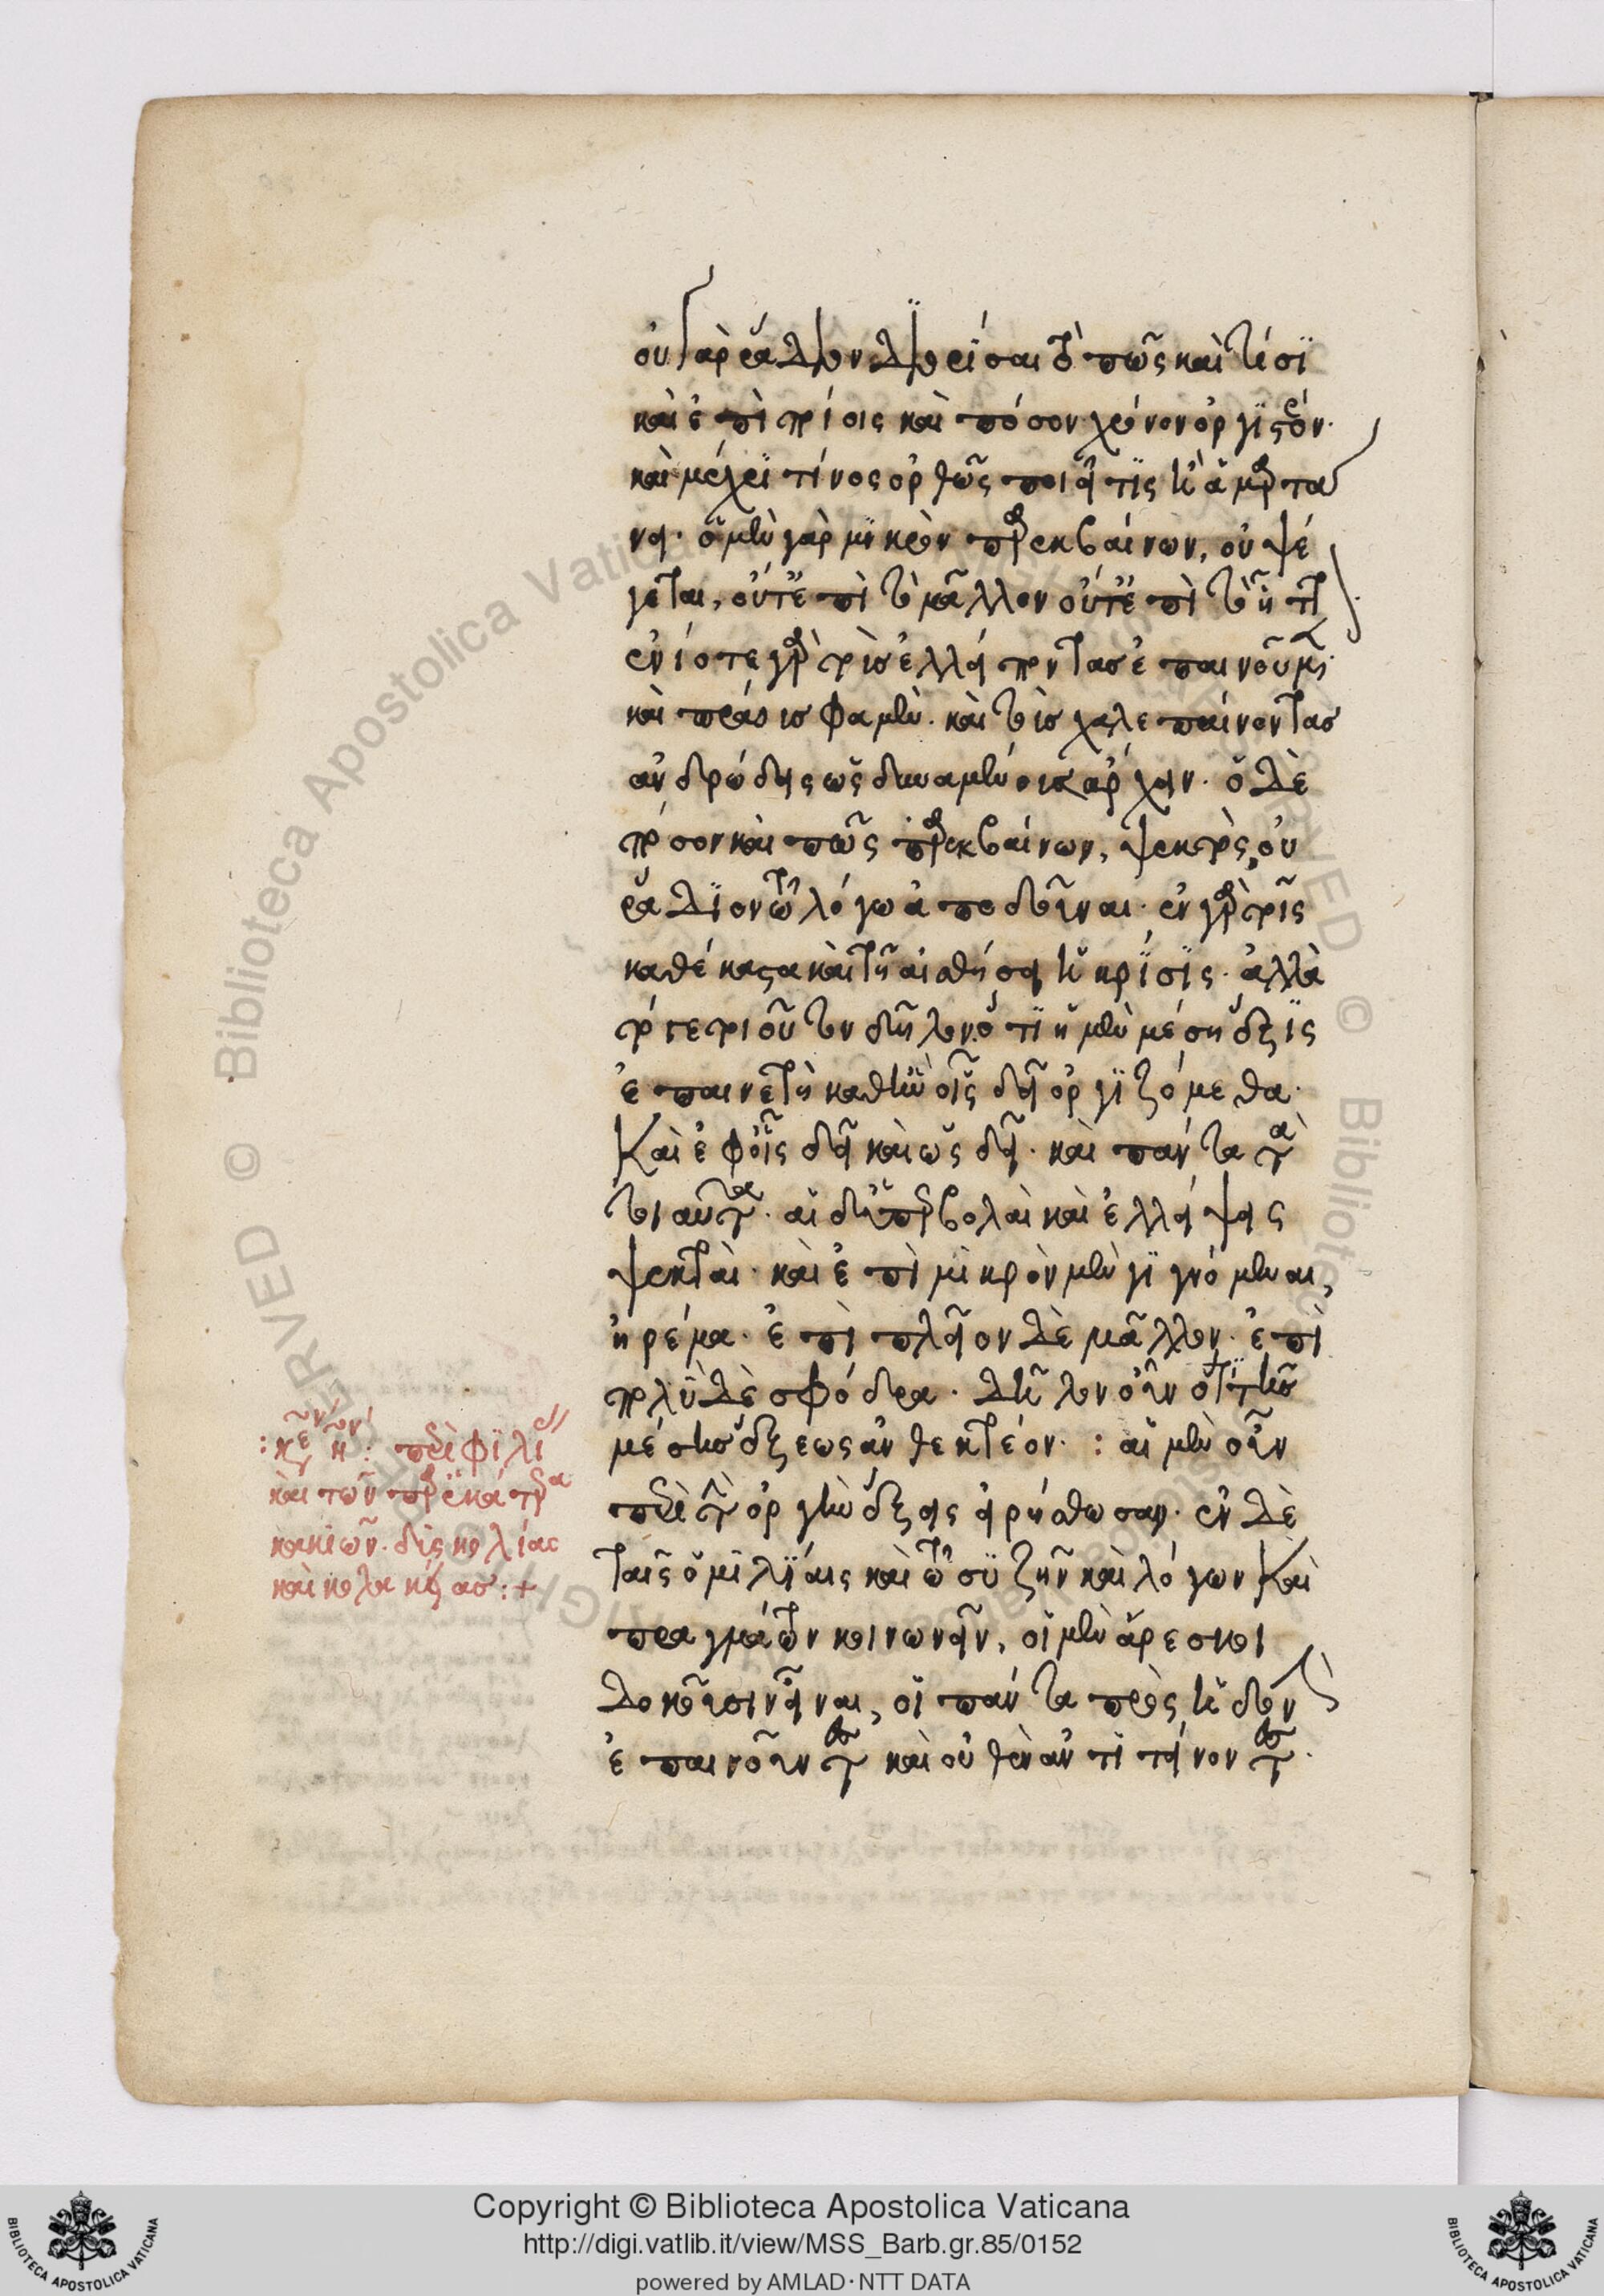 οὐ γὰρ ῥάδιον διορίσαι τὸ πῶς καὶ τίσι
καὶ ἐπὶ ποίοις καὶ πόσον χρόνον ὀργιστέον·
καὶ μέχρι τίνος ὀρθῶς ποιεῖ τὶς ἢ ἁμαρτά
νει· ὁ μὲν γὰρ μικρὸν παρεκβαίνων, οὐ ψέ
γεται, οὔτ' ἐπὶ τὸ μᾶλλον οὔτ' ἐπὶ τὸ ἧττον
ἐνίοτε γὰρ τοὺς ἐλλείποντας ἐπαινοῦμεν·
καὶ πράους φαμὲν· καὶ τοὺς χαλεπαίνοντας
ἀνδρώδεις ὡς δυναμένους ἄρχειν· ὁ δὲ
πόσον καὶ πῶς παρεκβαίνων, ψεκτὸς, οὐ
ῥάδιον τῶ λόγω ἀποδοῦναι· ἐν γὰρ τοῖς
καθέκαστα καὶ τῆ αἰσθήσει ἡ κρίσις· ἀλλὰ
τό γε τοιοῦτον δῆλον ὅτι ἡ μὲν μέση ἕξις
ἐπαινετὴ καθ' ἣν οἷς δεῖ ὀργιζόμεθα·
Καὶ ἐφ' οἷς δεῖ καὶ ὡς δεῖ· καὶ πάντα τὰ
τοιαῦτα· αἱ δ' ὑπερβολαὶ καὶ ἐλλείψεις
ψεκταὶ· καὶ ἐπὶ μικρὸν μὲν γιγνόμεναι,
ἠρέμα· ἐπὶ πλεῖον δὲ μᾶλλον· ἐπὶ
πολὺ δὲ σφόδρα· δῆλον οὖν ὅτι τῆς
μέσης ἕξεως ἀνθεκτέον· : αἱ μὲν οὖν
περὶ τὴν ὀργὴν ἕξεις εἰρήσθωσαν· ἐν δὲ
ταῖς ὁμιλίαις καὶ τῶ συζῆν καὶ λόγων καὶ
πραγμάτων κοινωνεῖν, οἱ μὲν ἄρεσκοι
δοκοῦσιν εἶναι, οἱ πάντα πρὸς ἡδονὴν
ἐπαινοῦντες καὶ οὐθὲν ἀντιτείνοντες·
περὶ φιλί
καὶ τῶν παρ' ἑκάτερα
κακιῶν· δυσκολίας
καὶ κολακείας :+